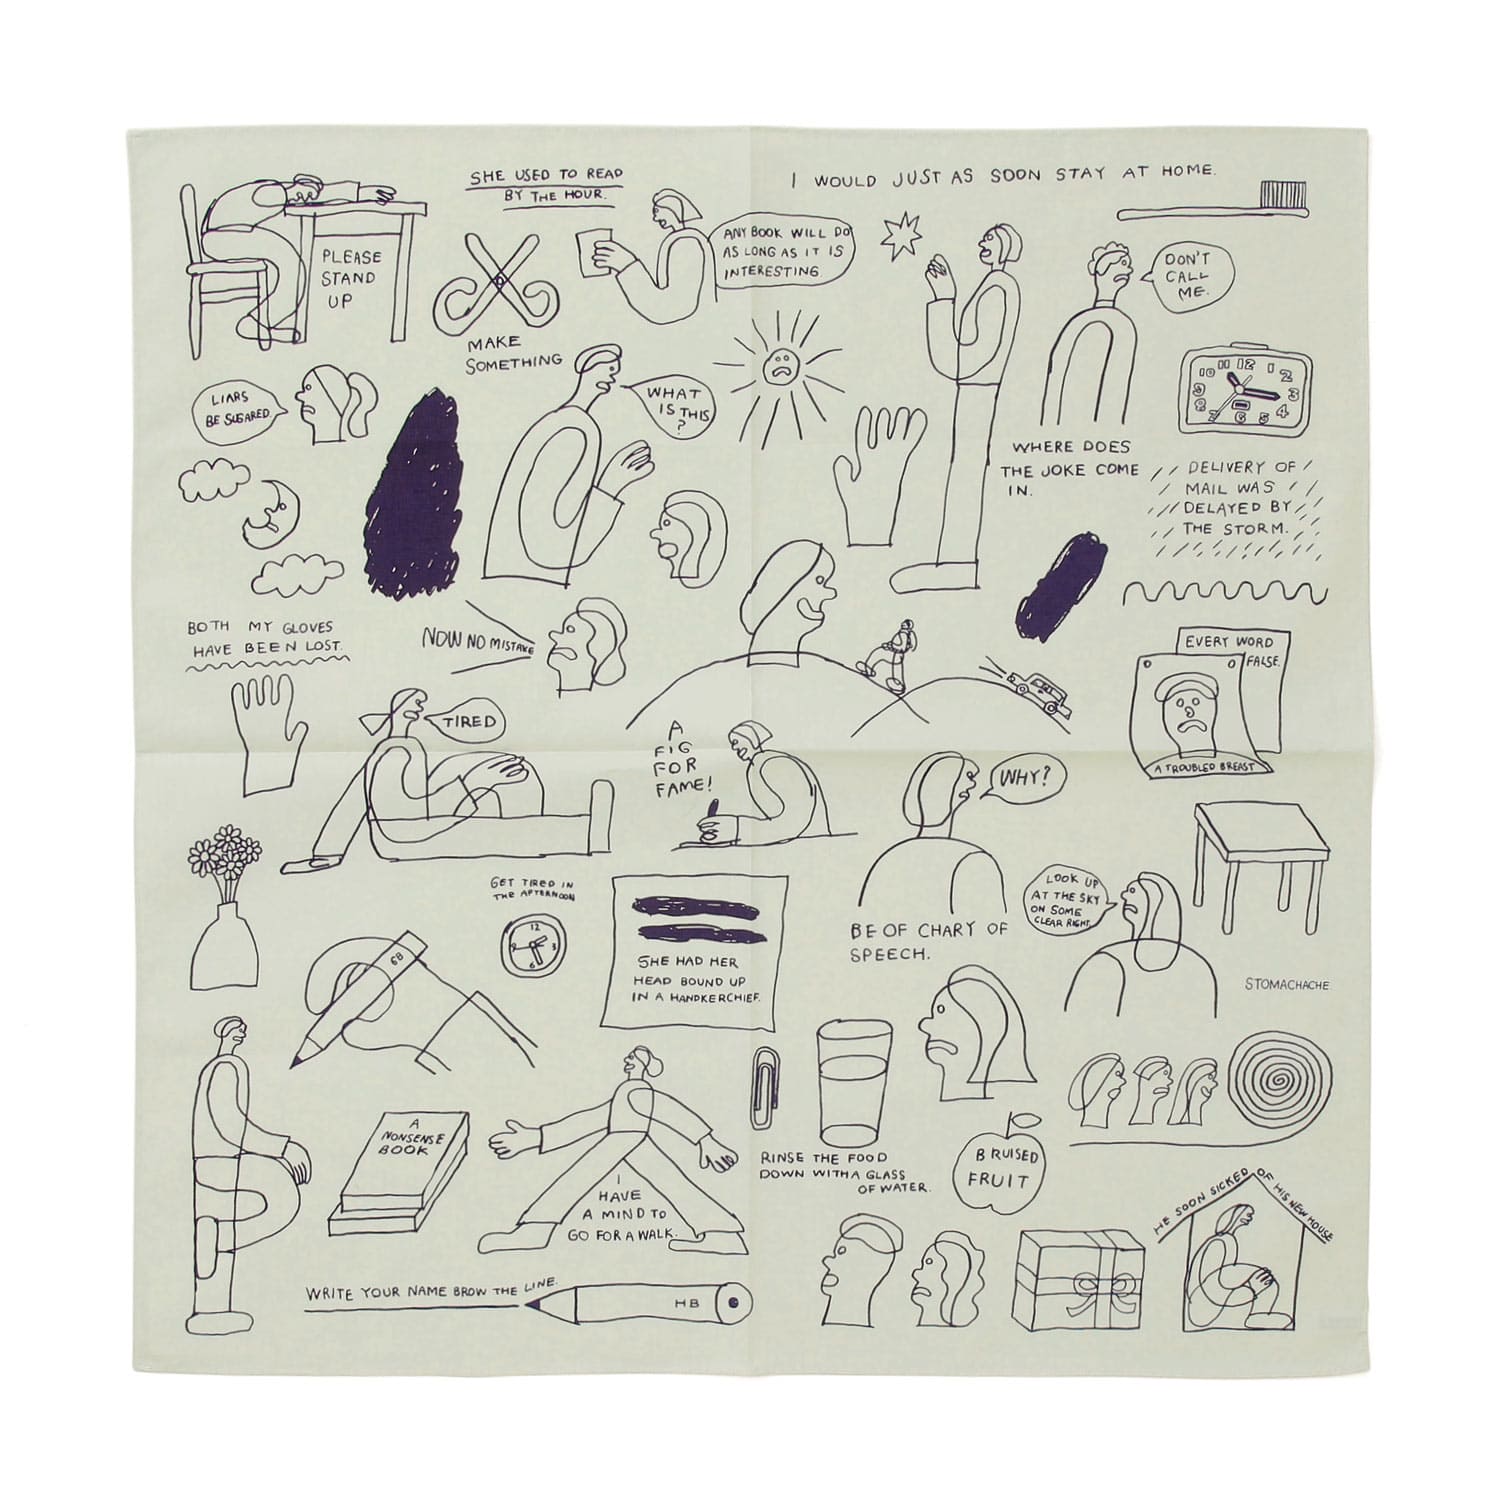 SHE USED TO READ
BY THE HOUR.
I WOULD JUST AS SOON STAY AT HOME.
PLEASE
STAND
UP
ANY BOOK WILL DO
AS LONG AS IT IS
INTERESTING
DON'T
CALL
ME.
MAKE
SOMETHING
LIARS
BE SUGARED
WHAT
IS THIS
?
10 11 12 1 2
9 3
8 4
6 5
WHERE DOES
THE JOKE COME
IN.
DELIVERY OF
MAIL WAS
DELAYED BY
THE STORM.
BOTH MY GLOVES
HAVE BEEN LOST.
NOW NO MISTAKE
EVERY WORD
FALSE.
A TROUBLED BREAST
TIRED
A
FIG
FOR
FAME!
WHY?
GET TIRED IN
THE AFTERNOON
12
9 3
6
6B
SHE HAD HER
HEAD BOUND UP
IN A HANDKERCHIEF.
BE OF CHARY OF
SPEECH.
LOOK UP
AT THE SKY
ON SOME
CLEAR RIGHT.
STOMACHACHE
A
NONSENSE
BOOK
I
HAVE
A MIND TO
GO FOR A WALK.
RINSE THE FOOD
DOWN WITH A GLASS
OF WATER.
BRUISED
FRUIT
HE SOON SICKED OF HIS NEW HOUSE
WRITE YOUR NAME BROW THE LINE.
HB